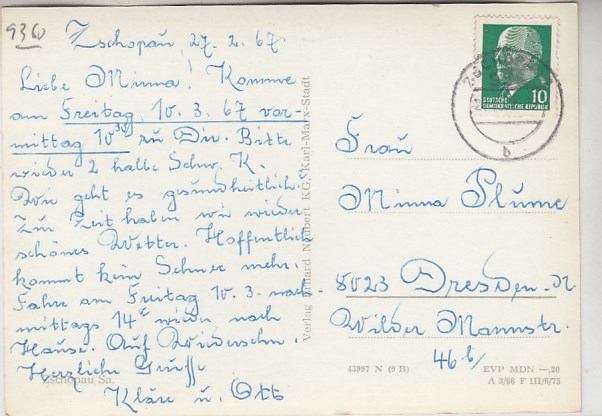 9360
Zschopau, 27. 2. 67.
Liebe Minna! Komme
am Freitag, 10. 3. 67 vor-
mittag 10³⁰ zu Dir. Bitte
wieder 2 halbe Schw. K.
Wie geht es gesundheitlich?
Zur Zeit haben wir wieder
schönes Wetter. Hoffentlich
kommt kein Schnee mehr.
Fahre am Freitag 10. 3. nach-
mittags 14 wieder nach
Hause. Auf Wiedersehn.
Herzliche Grüsse
Kläre u. Otto
Zschopau Sa.
Verlag Erhard Neubert KG, Karl-Marx-Stadt
10
DEUTSCHE
DEMOKRATISCHE REPUBLIK
b
Frau
Minna Plume
8023 Dresden-N
Wilder Mannstr.
46 b/
43997 N (9 B)
EVP MDN —,20
A 3/66 F III/6/75